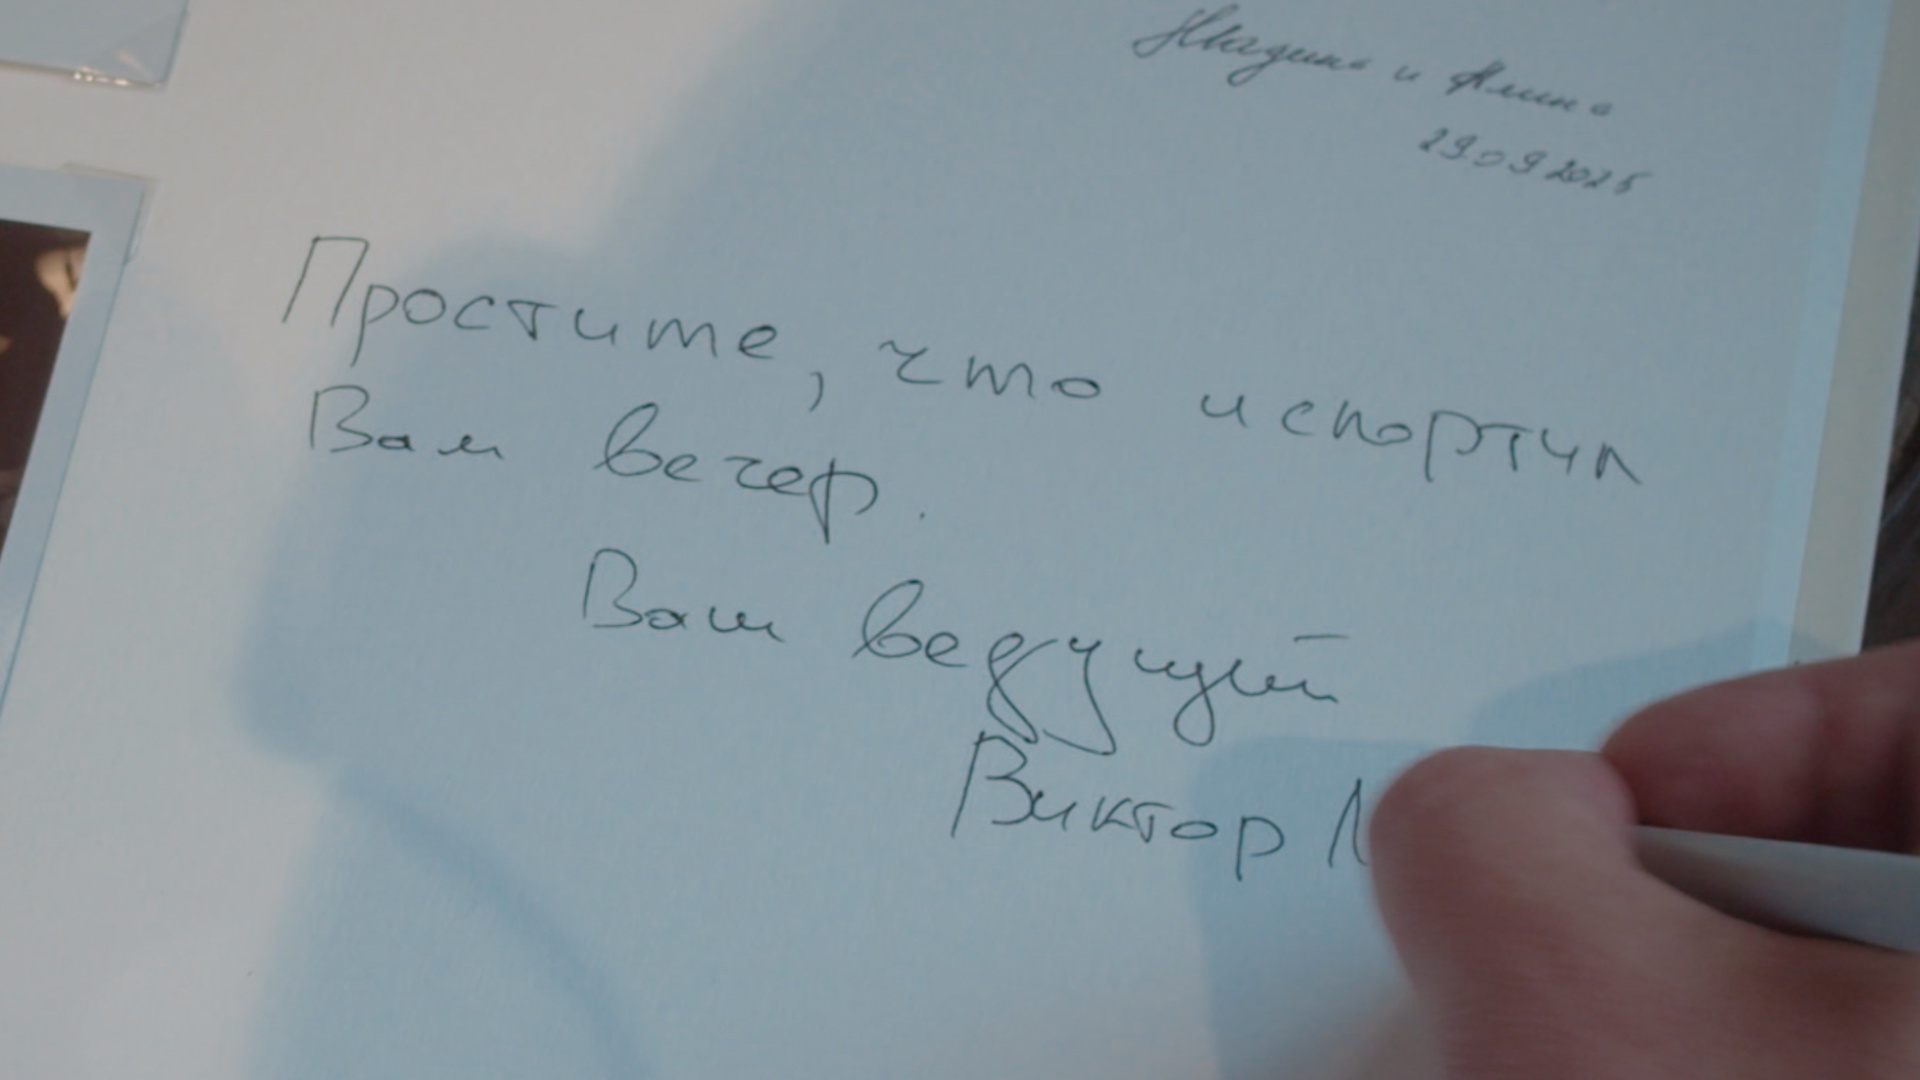 и Алина
29.09.2025
Простите, что испортил
Вам вечер.
Ваш ведущий
Виктор